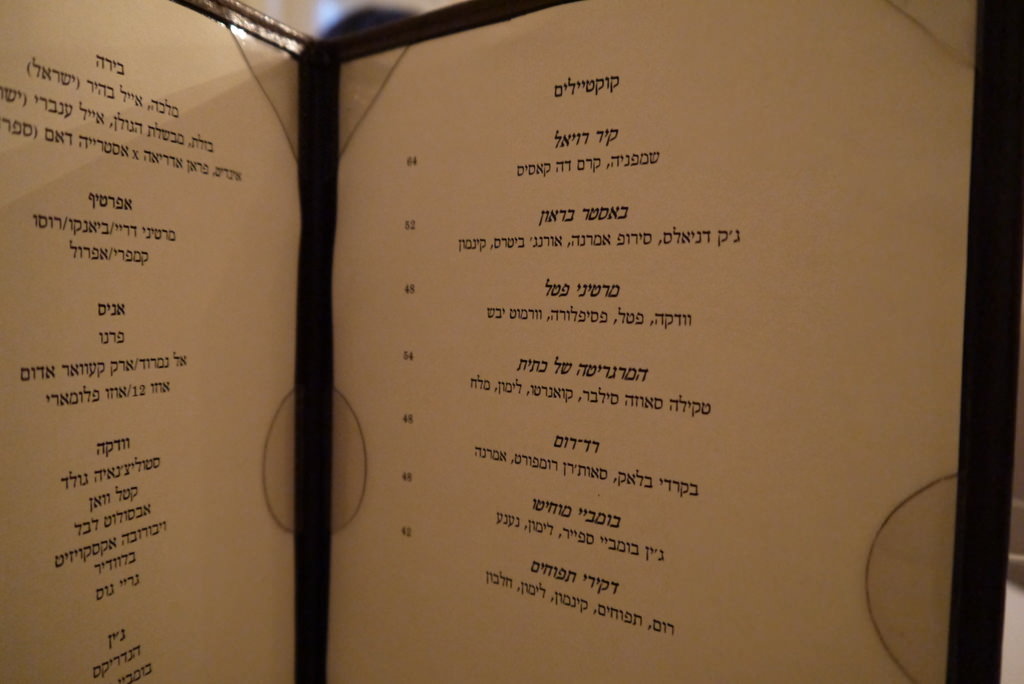 קוקטיילים
קיר רויאל
שמפניה, קרם דה קאסיס 64
באסטר בראון
ג׳ק דניאלס, סירופ אמרנה, אורנג׳ ביטרס, קינמון 52
מרטיני פטל
וודקה, פטל, פסיפלורה, וורמוט יבש 48
המרגריטה של כתית
טקילה סאוזה סילבר, קואנטרו, לימון, מלח 54
רד־רום
בקרדי בלאק, סאות׳רן רומפורט, אמרנה 48
בומביי מוחיטו
ג׳ין בומביי ספייר, לימון, נענע 48
דקירי תפוחים
רום, תפוחים, קינמון, לימון, חלבון 42
בירה
מלכה, אייל בהיר (ישראל)
בזלת, מבשלת הגולן, אייל ענברי
אינדיט, פראן אדריאה x אסטרייה דאם
אפרטיף
מרטיני דריי/ביאנקו/רוסו
קמפרי/אפרול
אניס
פרנו
אל נמרוד/ארק קעוואר אדום
אוזו 12/אוזו פלומארי
וודקה
סטוליצ׳נאיה גולד
קטל וואן
אבסולוט לבל
ויבורובה אקסקויזיט
בלוודיר
גריי גוס
ג׳ין
הנדריקס
בומביי